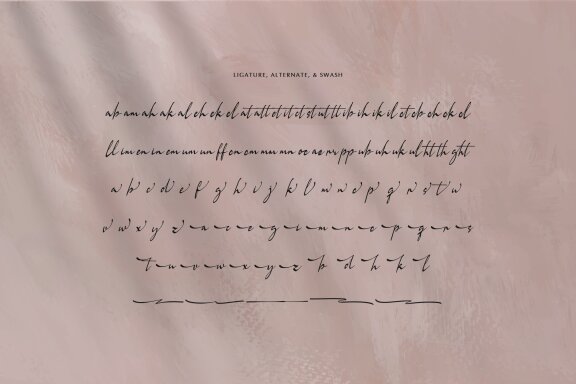 LIGATURE, ALTERNATE, & SWASH
ab am ah ak al ch ck cl at att ct it ct st ut tt ib ih ik il et eb eh ek el
ll im en in em um un ff on om mu mn oc ac nr pp ub uh uk ul ht th ght
a b c d e f g h i j k l m n e p q r s t u
v w x y z a c e g i m n e p q r s
t u v w x y z b d h k l